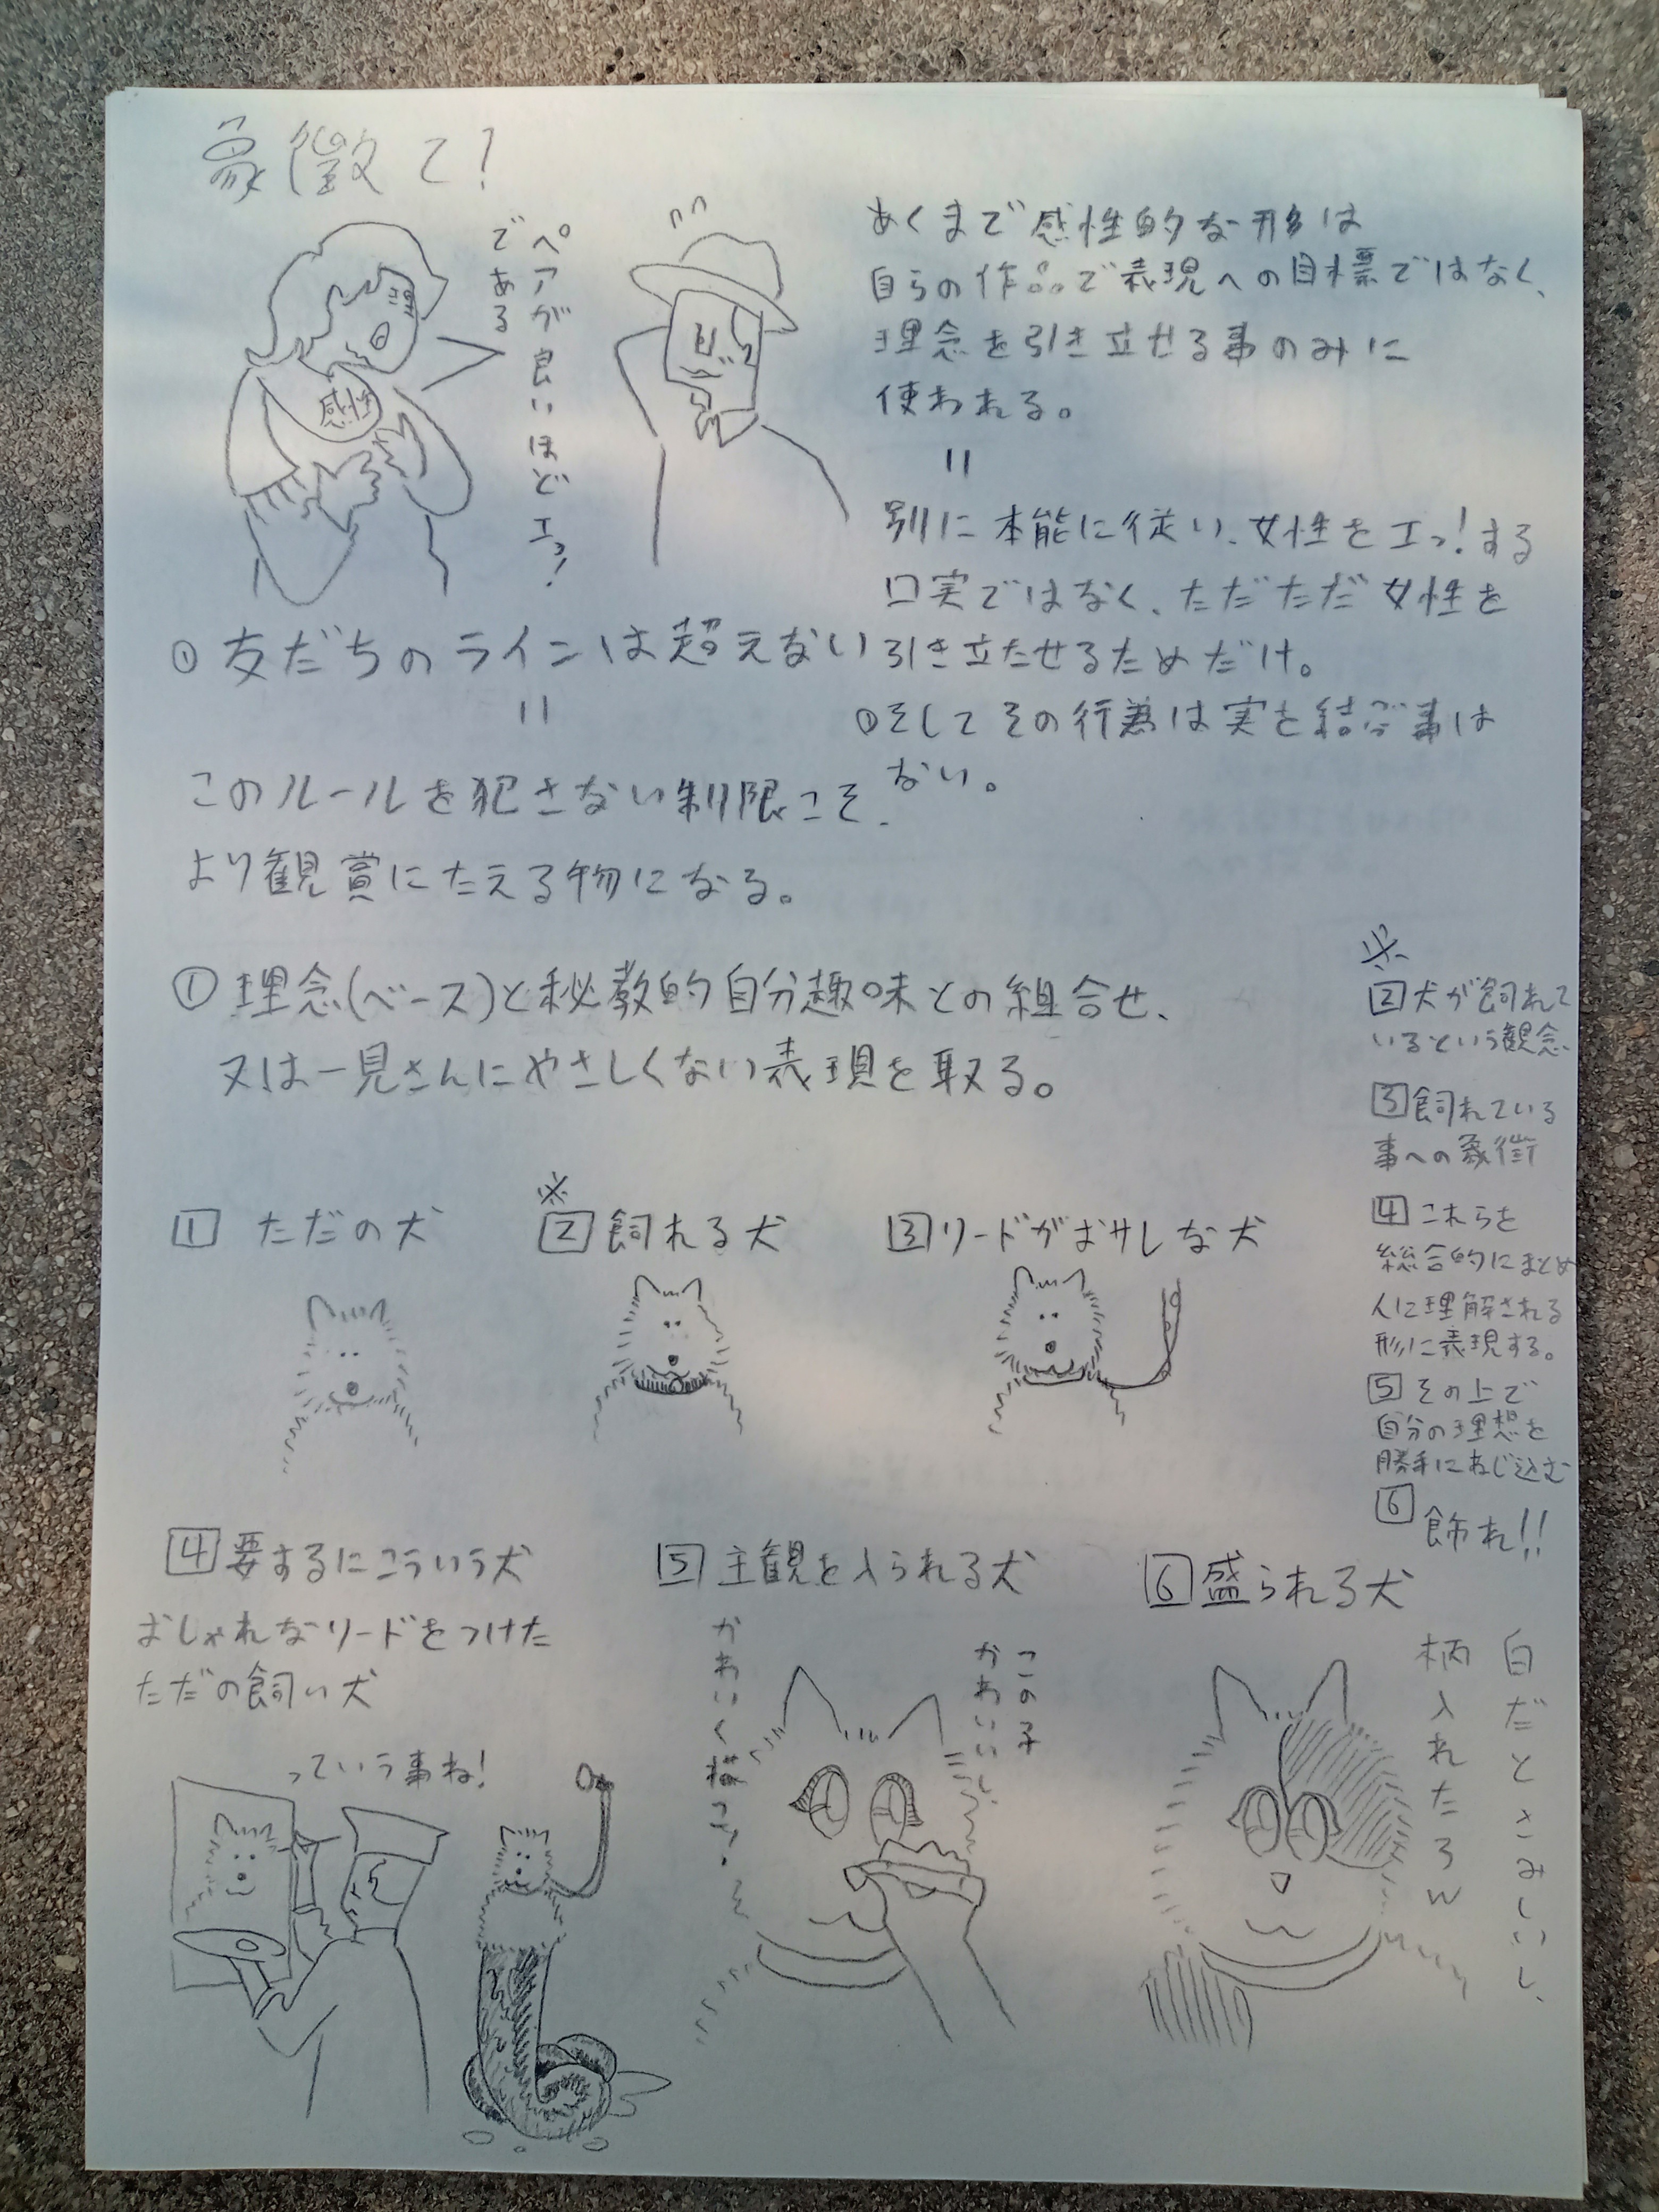 象徴て!
ペアが良いほどエっ!
である
理
感性
あくまで感性的な形は
自らの作品で表現への目標ではなく、
理念を引き立せる事のみに
使われる。
=
別に本能に従い、女性をエっ!する
口実ではなく、ただただ女性を
引き立たせるためだけ。
①そしてその行為は実を結ぶ事は
ない。
①友だちのラインは超えない
=
このルールを犯さない制限こそ、
より観賞にたえる物になる。
①理念(ベース)と秘教的自分趣味との組合せ、
又は一見さんにやさしくない表現を取る。
※
2犬が飼れて
いるという観念
3飼れている
事への象徴
4これらを
総合的にまとめ
人に理解される
形に表現する。
5その上で
自分の理想を
勝手にねじ込む
6飾れ!!
1ただの犬
※
2飼れる犬
3リードがオサレな犬
4要するにこういう犬
おしゃれなリードをつけた
ただの飼い犬
っていう事ね!
5主観を入られる犬
この子
かわいいし、
かわいく描こ!
6盛られる犬
白だとさみしいし、
柄入れたろw